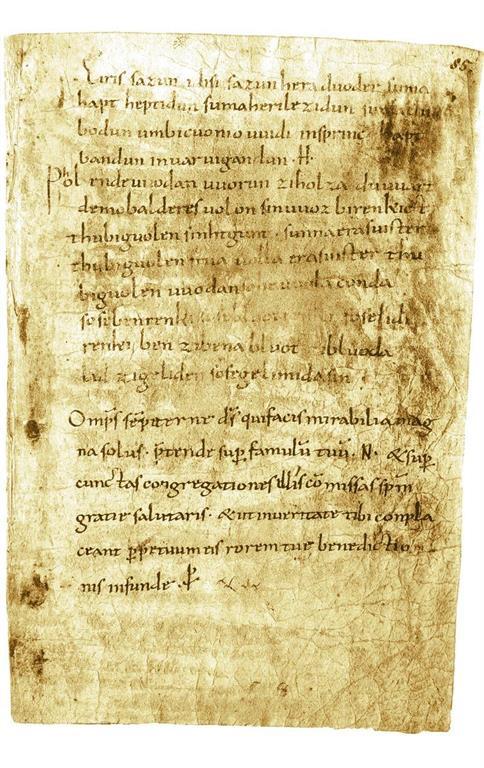 85
Eiris sazun idisi sazun hera duoder suma
hapt heptidun suma herilezidun sumaclu
bodun umbicuonio uuidi insprinc hapt
bandun inuar uigandun · H ·
Phol ende uuodan uuorun zi holza du uuart
demo balderes uolon sin uuoz birenkict
thu biguolen sinhtgunt · sunna era suister
thu biguolen friia uolla era suister thu
biguolen uuodan so he uuola conda
sose benrenki sose bluotrenki sose lidi
renki ben zi bena bluot zi bluoda
lid zi geliden sose gelimida sin
Omps sempiterne ds qui facis mirabilia mag
na solus · ptende sup famulu tuu · N · & sup
cunctas congregationes illis comissas spm
gratie salutaris · & ut in ueritate tibi conpla
ceant ppetuum eis rorem tue benedictio
nis infunde · P